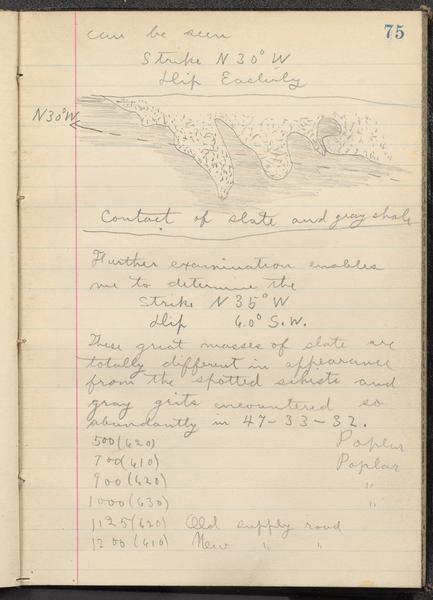 75
can be seen
Strike N 30° W
Dip Easterly
N30°W
Contact of slate and gray shale
Further examination enables
me to determine the
Strike N 35° W
Dip 60° S.W.
These great masses of slate are
totally different in appearance
from the spotted schists and
gray grits encountered so
abundantly in 47-33-32.
500 (620) Poplar
700 (610) Poplar
900 (620) "
1000 (630) "
1125 (620) Old supply road
1200 (610) New " "